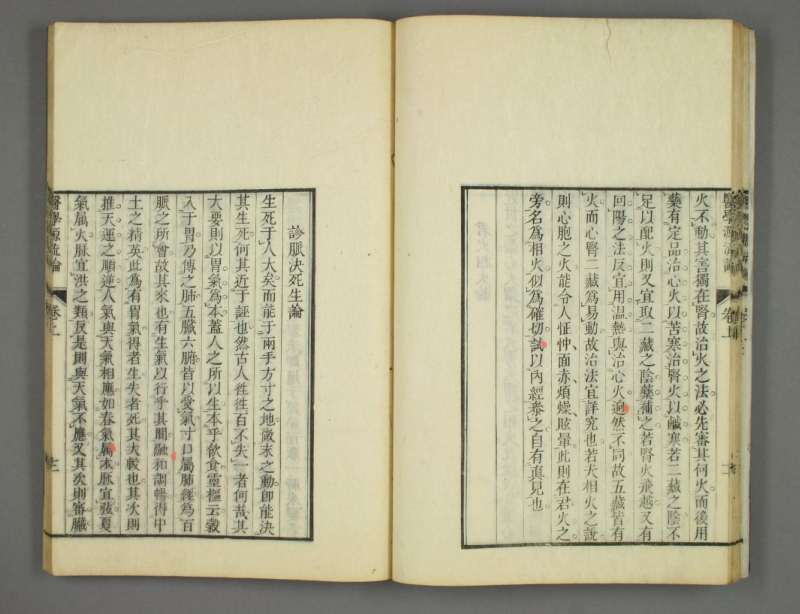 火不動其害獨在腎故治火之法必先審其何火而後用
藥有定品治心火以苦寒治腎火以鹹寒若二藏之陰不
足以配火則又宜取二藏之陰藥補之若腎火飛越又有
回陽之法反宜用温熱與治心火迥然不同故五藏皆有
火而心腎二藏爲易動故治法宜詳究也若夫相火之說
則心胞之火能令人怔忡面赤煩燥眩暈此則在君火之
旁名爲相火似爲確切試以內經參之自有真見也
醫學源流論
卷上
診脈決死生論
生死于人大矣而能于兩手方寸之地微末之動卽能決
其生死何其近于誣也然古人往往百不失一者何哉其
大要則以胃氣爲本蓋人之所以生本乎飲食靈樞云穀
入于胃乃傳之肺五臟六腑皆以受氣寸口屬肺經爲百
脈之所會故其來也有生氣以行乎其間融和調暢得中
土之精英此爲有胃氣得者生失者死其大較也其次則
推天運之順逆人氣與天氣相應如春氣屬木脈宜弦夏
氣屬火脈宜洪之類反是則與天氣不應又其次則審臟
醫學源流論
卷上